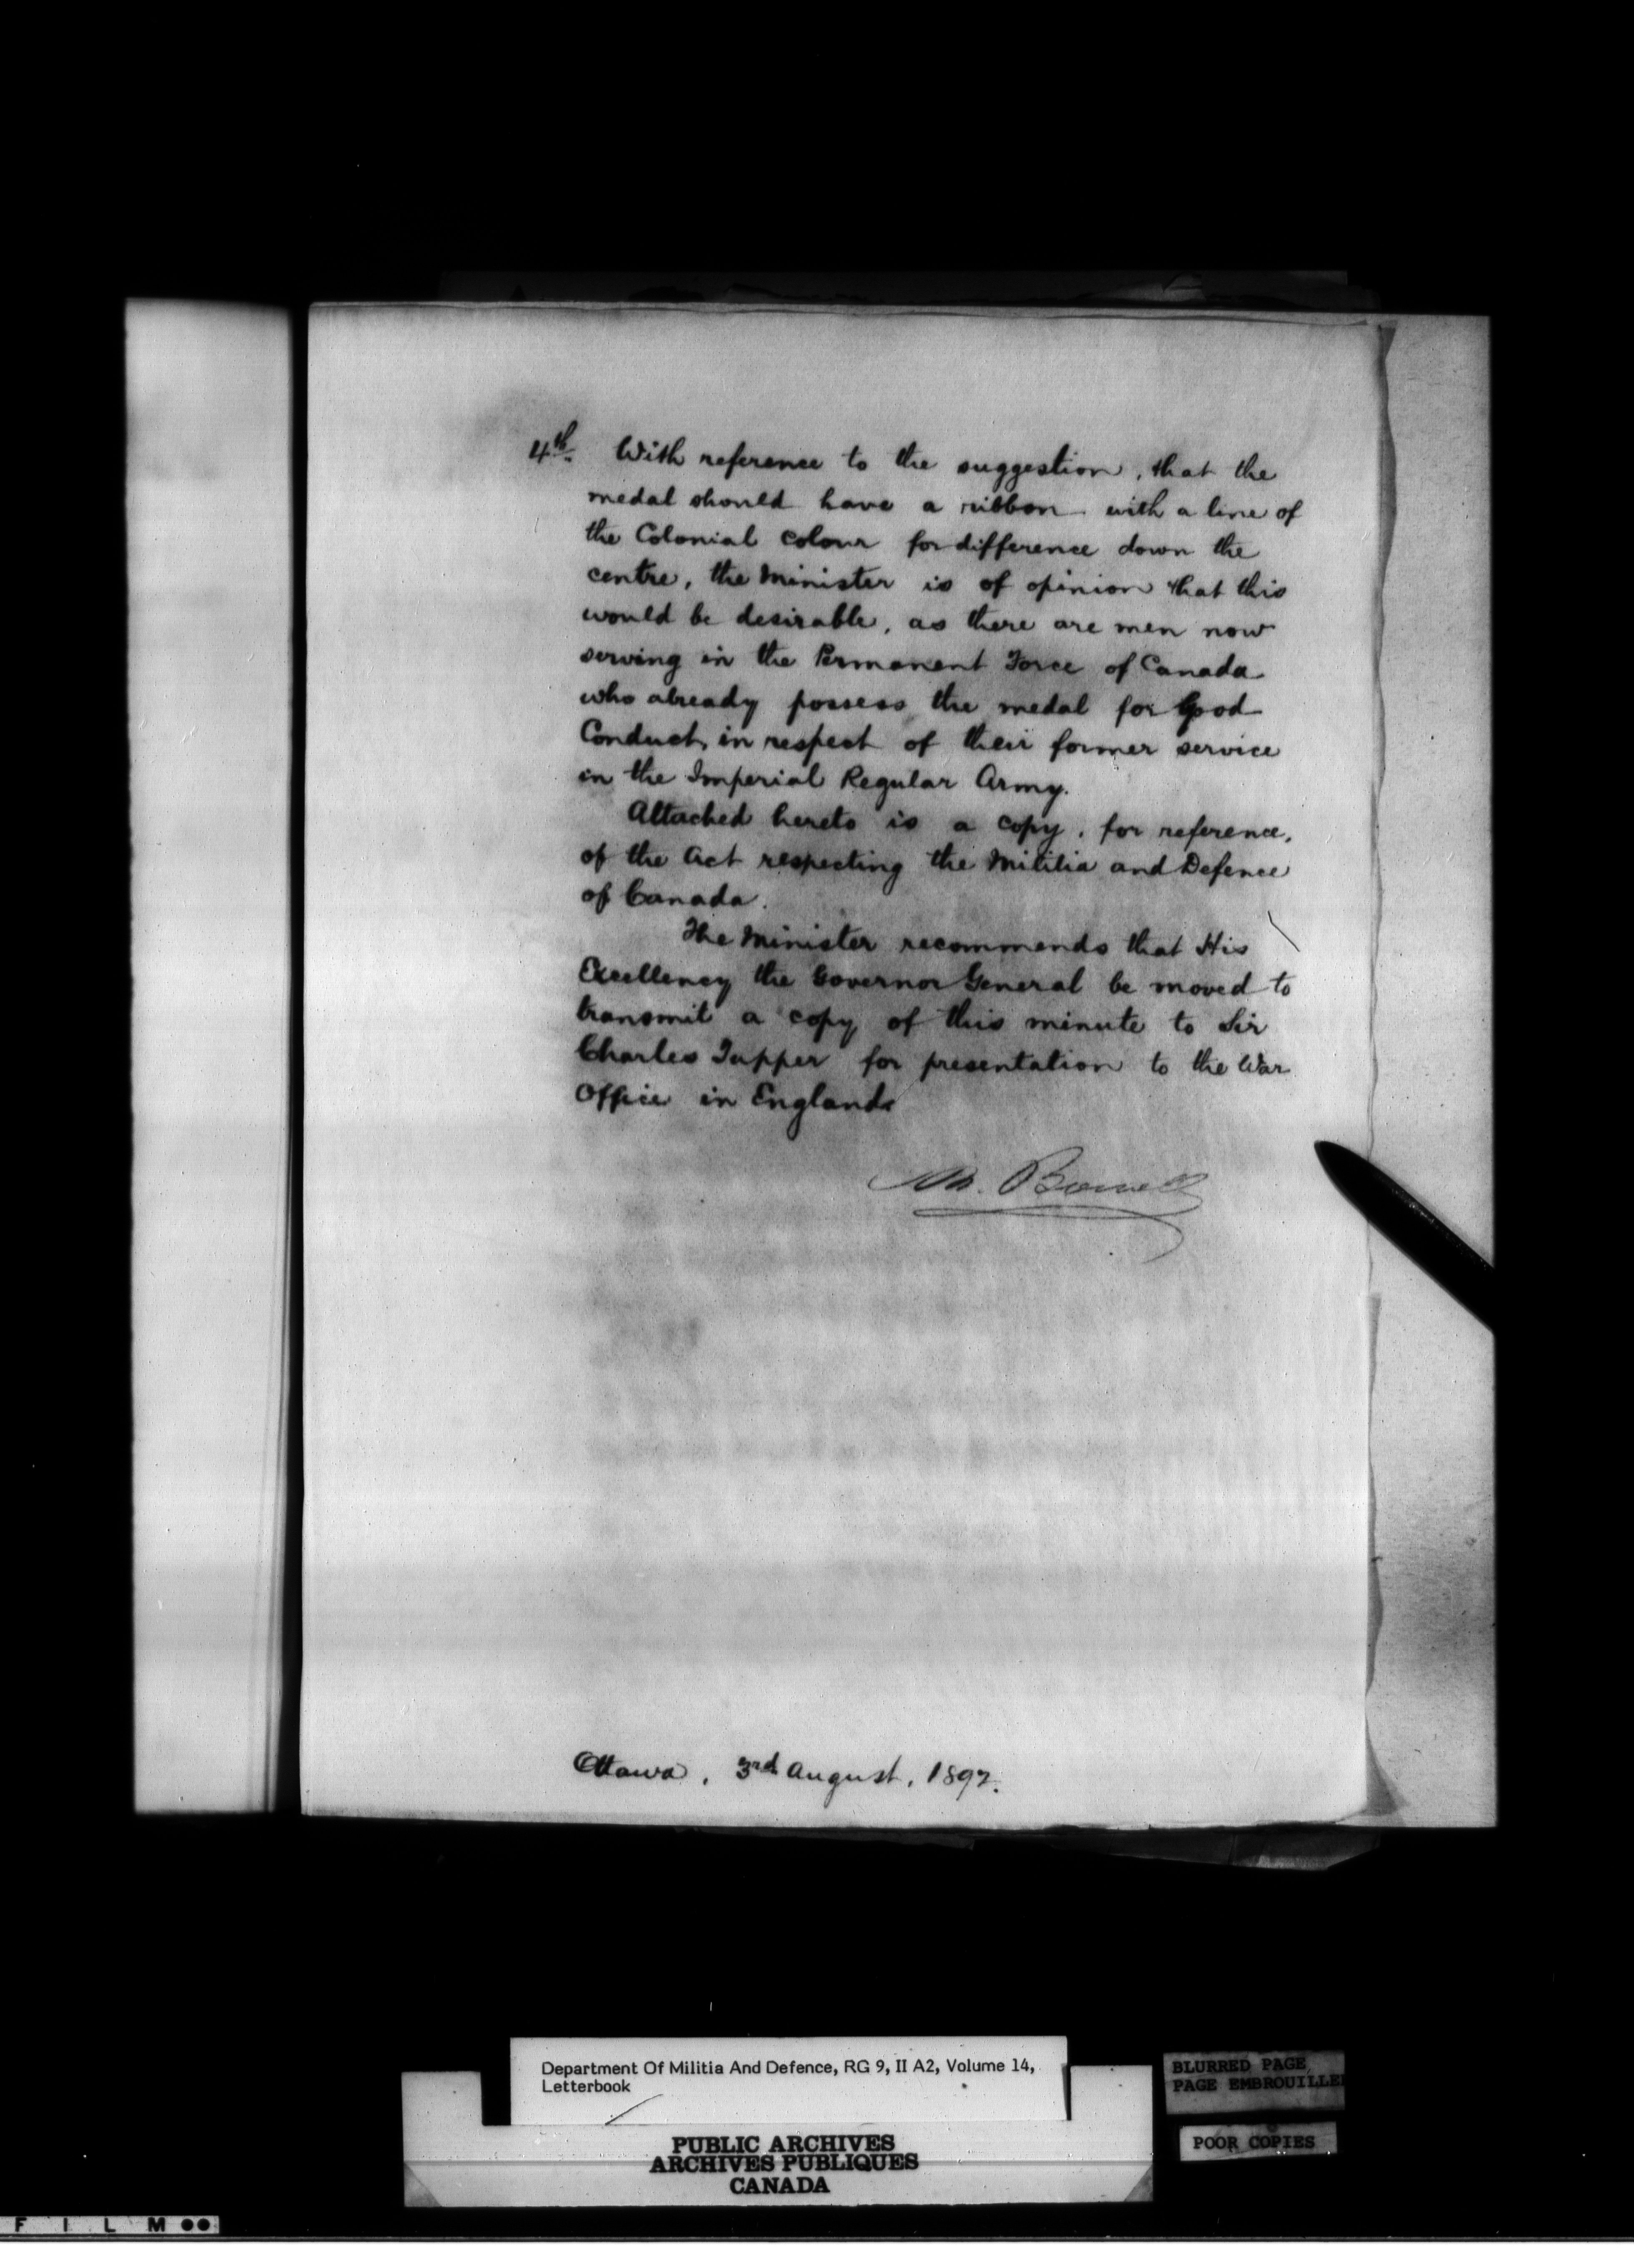 4th. With reference to the suggestion, that the
medal should have a ribbon with a line of
the Colonial colour for difference down the
centre, the Minister is of opinion that this
would be desirable, as there are men now
serving in the Permanent Force of Canada
who already possess the medal for Good
Conduct, in respect of their former service
in the Imperial Regular Army.
Attached hereto is a copy, for reference,
of the Act respecting the Militia and Defence
of Canada.
The Minister recommends that His
Excellency the Governor General be moved to
transmit a copy of this minute to Sir
Charles Tupper for presentation to the War
Office in England.
M. Bowell
Ottawa, 3rd August, 1892.
Department Of Militia And Defence, RG 9, II A2, Volume 14,
Letterbook
BLURRED PAGE
PAGE EMBROUILLEE
POOR COPIES
PUBLIC ARCHIVES
ARCHIVES PUBLIQUES
CANADA
F I L M